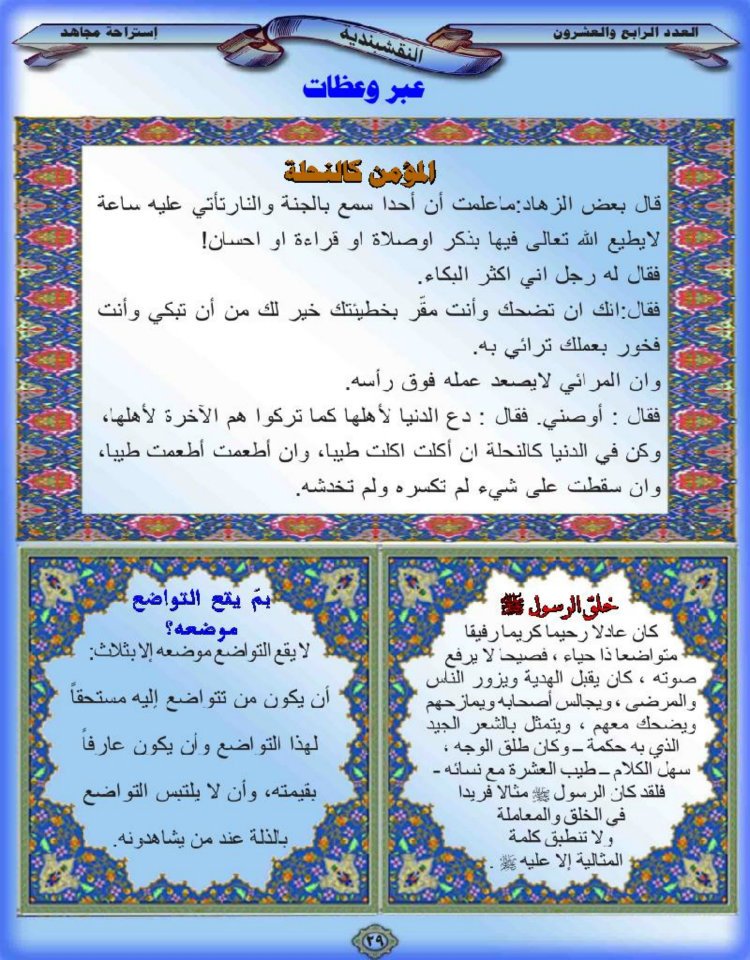 العدد الرابع والعشرون
النقشبندية
إستراحة مجاهد
عبر وعظات
المؤمن كالنحلة
قال بعض الزهاد:ماعلمت أن أحدا سمع بالجنة والنارتأتي عليه ساعة
لايطيع الله تعالى فيها بذكر اوصلاة او قراءة او احسان!
فقال له رجل اني اكثر البكاء.
فقال:انك ان تضحك وأنت مقّر بخطيئتك خير لك من أن تبكي وأنت
فخور بعملك ترائي به.
وان المرائي لايصعد عمله فوق رأسه.
فقال : أوصني. فقال : دع الدنيا لأهلها كما تركوا هم الآخرة لأهلها،
وكن في الدنيا كالنحلة ان أكلت اكلت طيبا، وان أطعمت أطعمت طيبا،
وان سقطت على شيء لم تكسره ولم تخدشه.
خلق الرسول ﷺ
كان عادلا رحيما كريما رفيقا
متواضعا ذا حياء ، فصيحا لا يرفع
صوته ، كان يقبل الهدية ويزور الناس
والمرضى ، ويجالس أصحابه ويمازحهم
ويضحك معهم ، ويتمثل بالشعر الجيد
الذي به حكمة – وكان طلق الوجه ،
سهل الكلام – طيب العشرة مع نسائه -
فلقد كان الرسول ﷺ مثالا فريدا
في الخلق والمعاملة
ولا تنطبق كلمة
المثالية إلا عليه ﷺ .
بمّ يقع التواضع
موضعه؟
لا يقع التواضع موضعه إلا بثلاث:
أن يكون من تتواضع إليه مستحقاً
لهذا التواضع وأن يكون عارفاً
بقيمته، وأن لا يلتبس التواضع
بالذلة عند من يشاهدونه.
٣٩